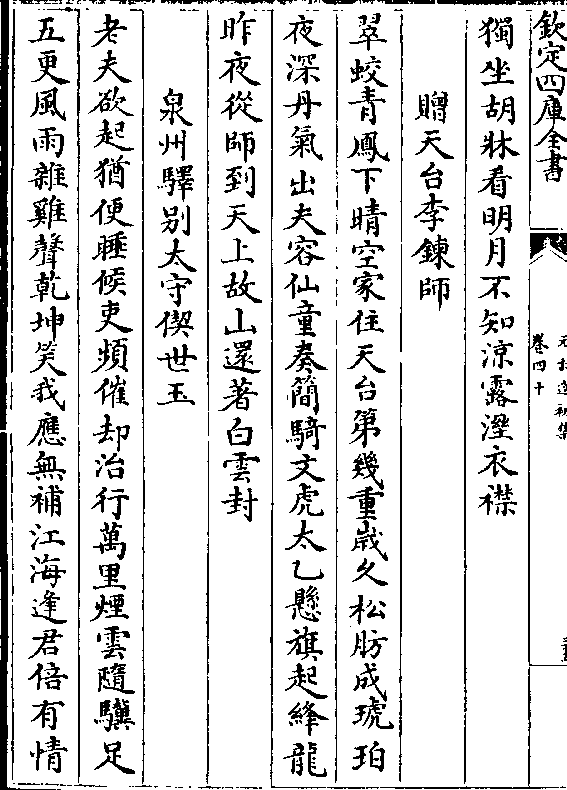 欽定四庫全書
卷四十
獨坐胡牀看明月不知涼露溼衣襟
贈天台李鍊師
翠蛟青鳳下晴空家住天台第幾重歲久松肪成琥珀
夜深丹氣出夫容仙童奏簡騎文虎太乙懸旗起絳龍
昨夜從師到天上故山還著白雲封
泉州驛別太守偰世玉
老夫欲起猶便睡候吏頻催却治行萬里煙雲隨驥足
五更風雨雜雞聲乾坤笑我應無補江海逢君倍有情